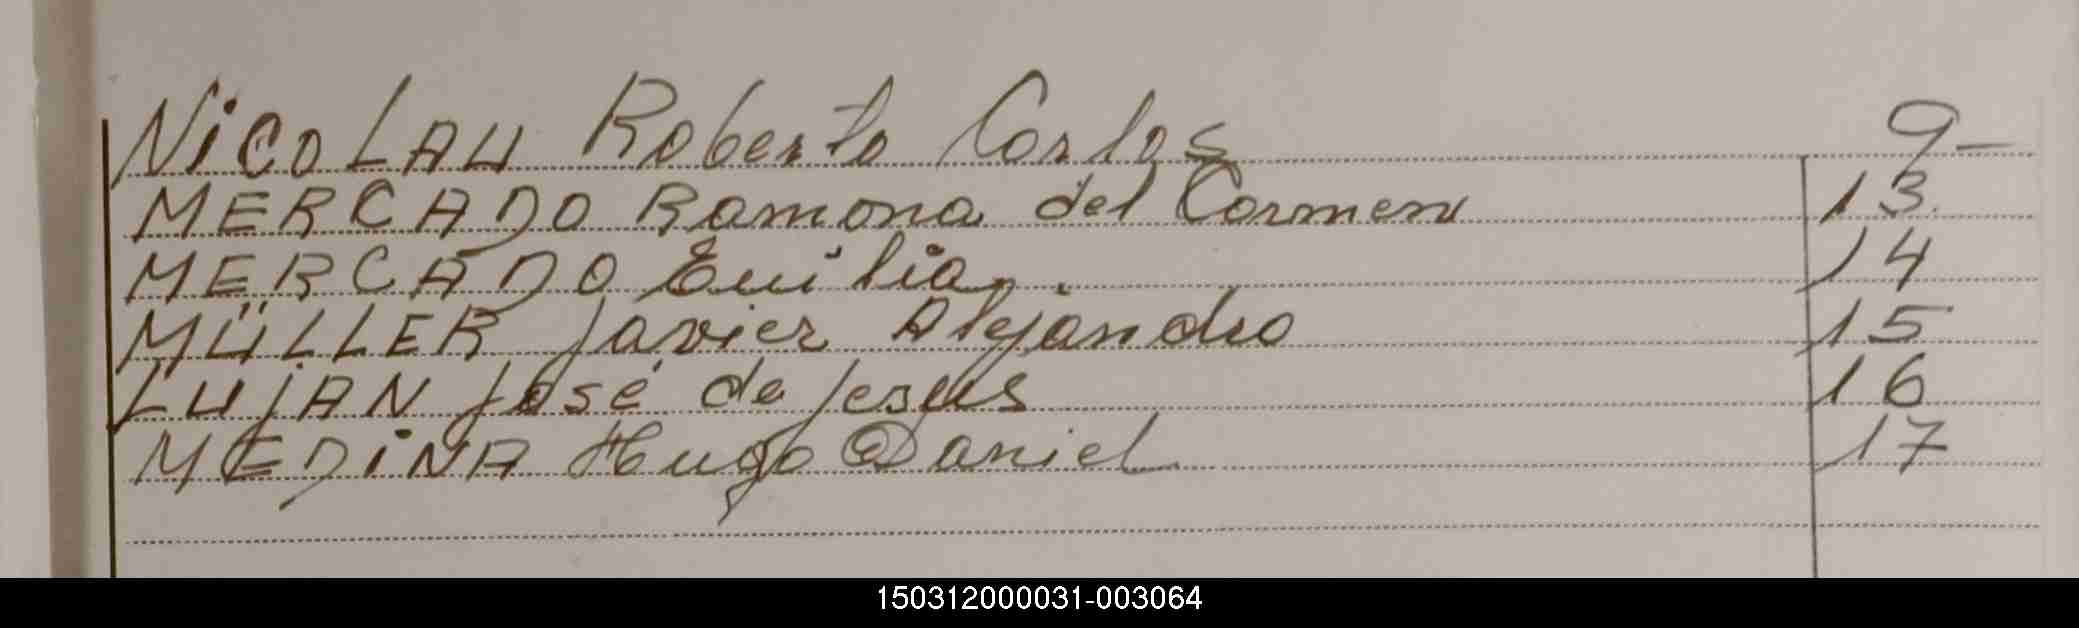 NICOLAU Roberto Carlos 9-
MERCADO Ramona del Carmen 13
MERCADO Emilia. 14
MÜLLER Javier Alejandro 15
LUJAN José de Jesus 16
MEDINA Hugo Daniel 17
150312000031-003064